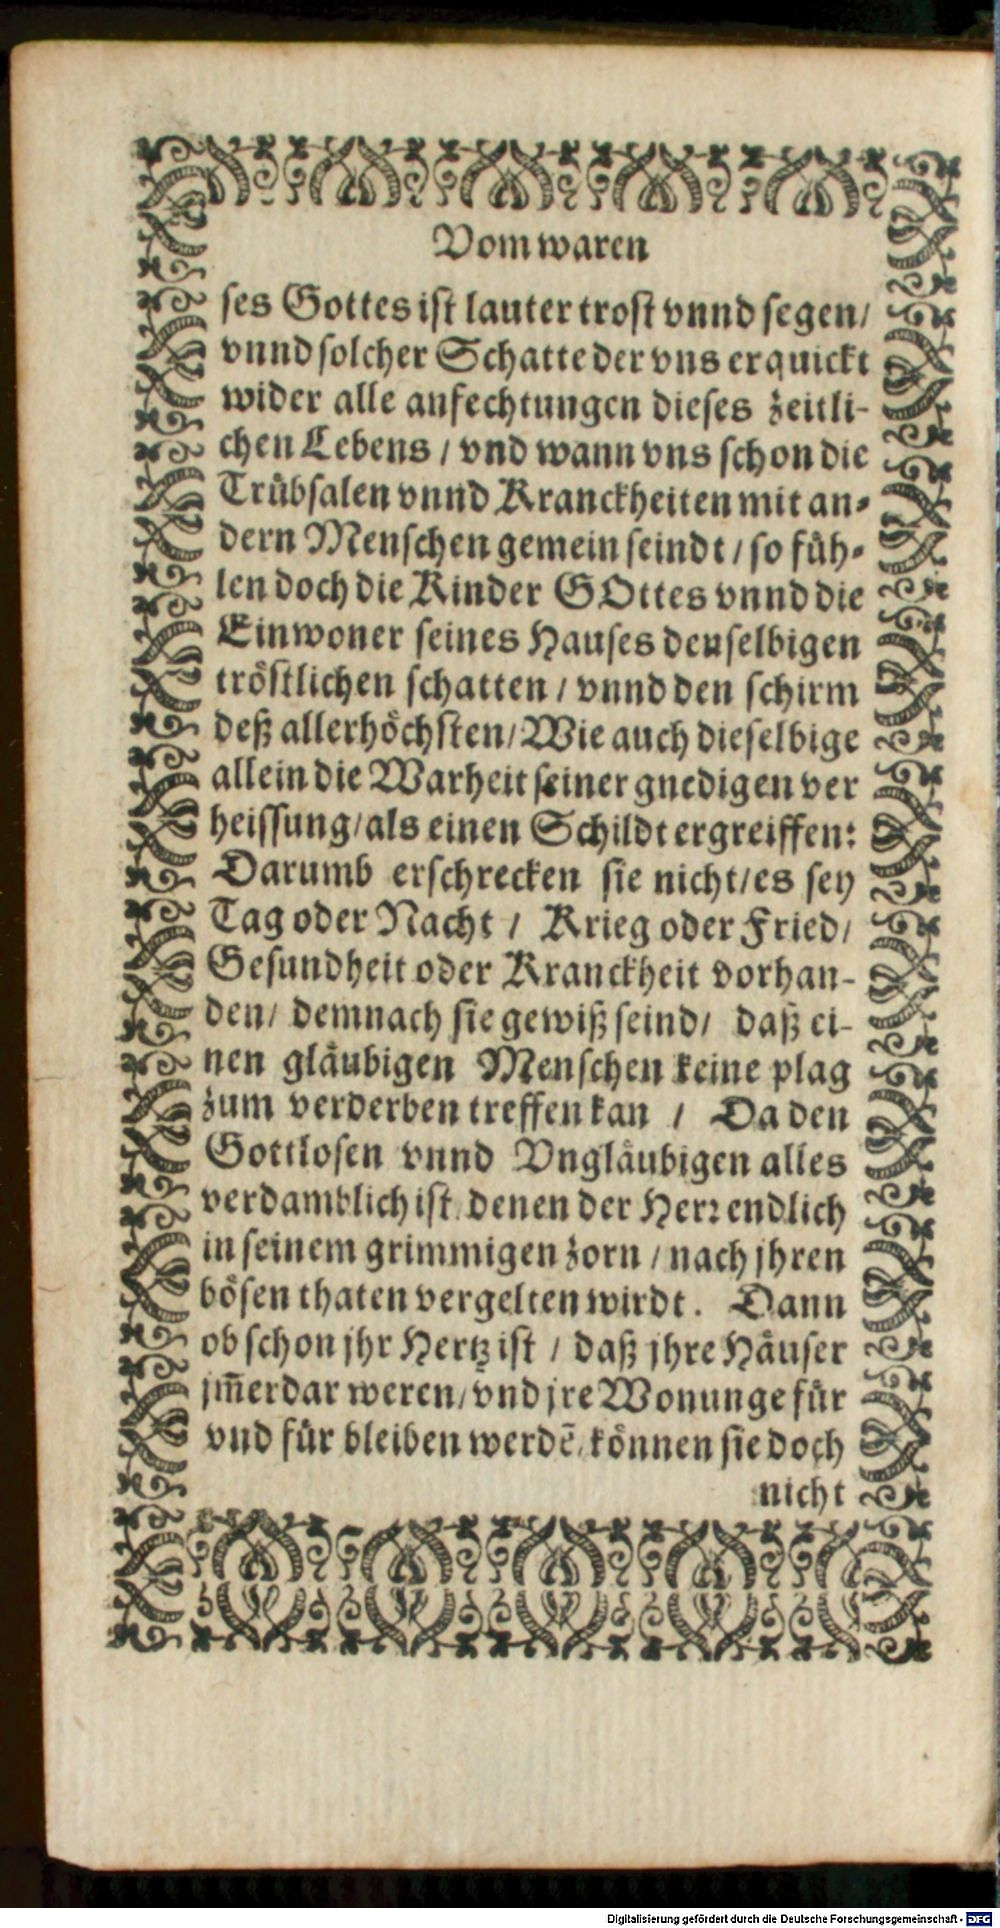 Vom waren
ses Gottes ist lauter trost vnnd segen/
vnnd solcher Schatte der vns erquickt
wider alle anfechtungen dieses zeitli-
chen Lebens / vnd wann vns schon die
Trübsalen vnnd Kranckheiten mit an-
dern Menschen gemein seindt / so füh-
len doch die Kinder GOttes vnnd die
Einwoner seines Hauses denselbigen
tröstlichen schatten / vnnd den schirm
deß allerhöchsten/ Wie auch dieselbige
allein die Warheit seiner gnedigen ver
heissung/ als einen Schildt ergreiffen:
Darumb erschrecken sie nicht/ es sey
Tag oder Nacht / Krieg oder Fried/
Gesundheit oder Kranckheit vorhan-
den/ demnach sie gewiß seind/ daß ei-
nen gläubigen Menschen keine plag
zum verderben treffen kan / Da den
Gottlosen vnnd Vngläubigen alles
verdamblich ist/ denen der Herr endlich
in seinem grimmigen zorn / nach jhren
bösen thaten vergelten wirdt. Dann
ob schon jhr Hertz ist / daß jhre Häuser
jm̄erdar weren/ vnd jre Wonunge für
vnd für bleiben werdē/ können sie doch
nicht
Digitalisierung gefördert durch die Deutsche Forschungsgemeinschaft - DFG